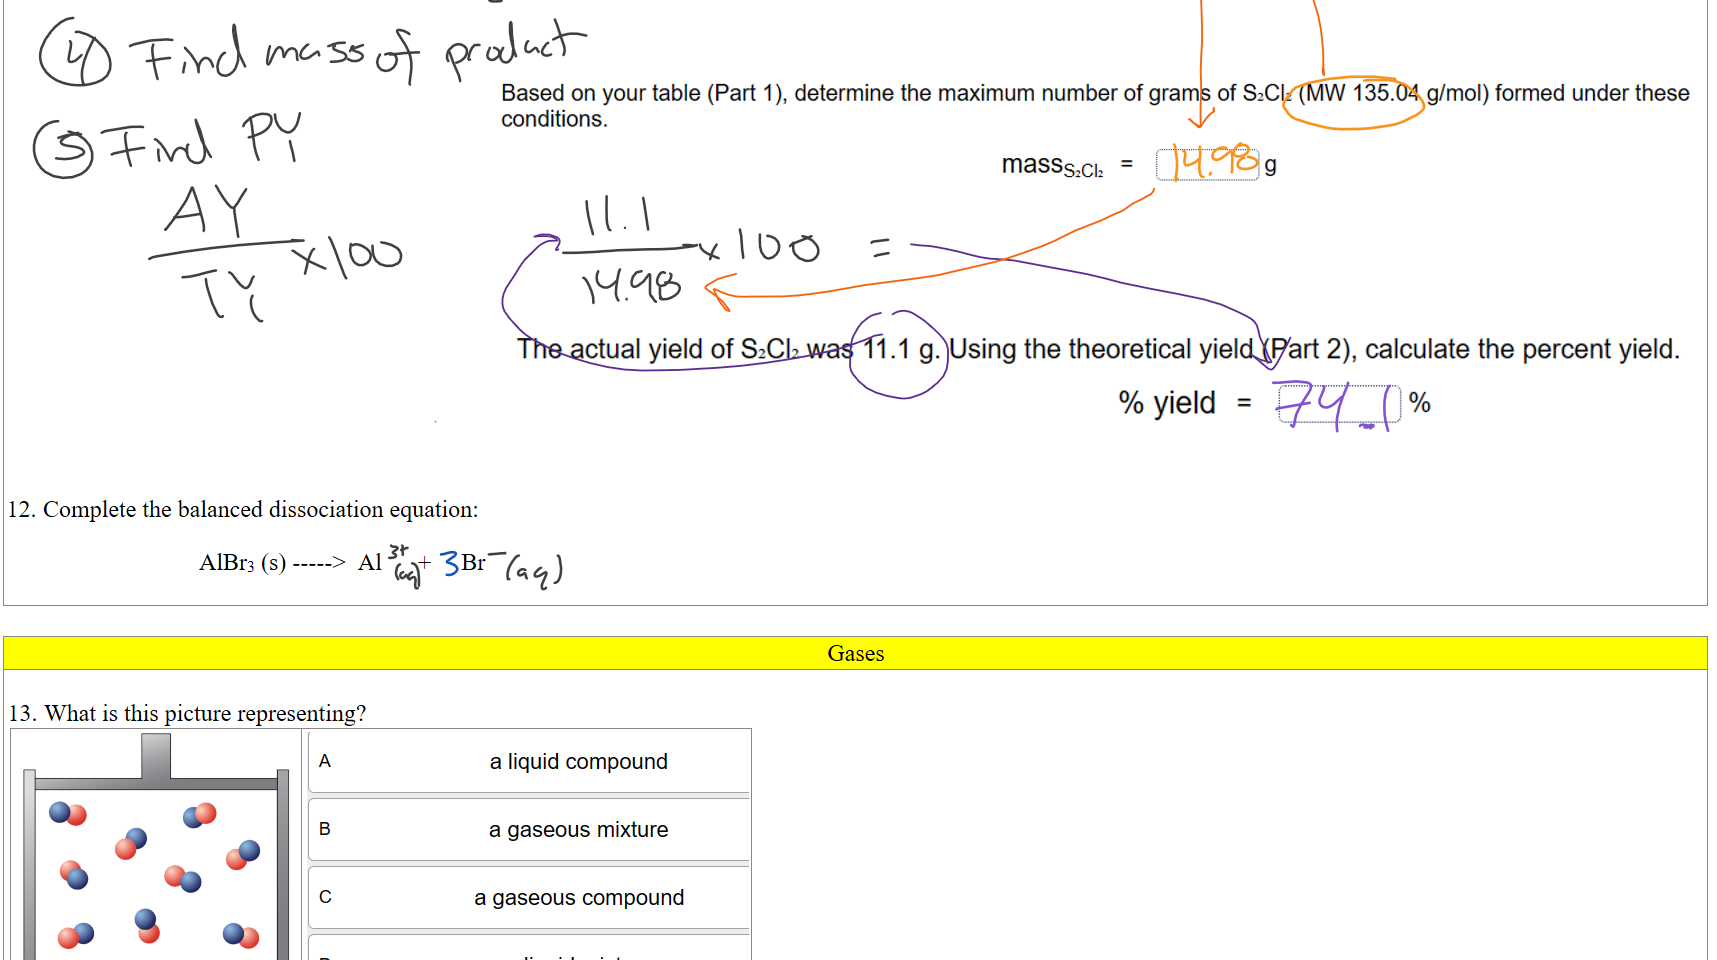 ④ Find mass of product
Based on your table (Part 1), determine the maximum number of grams of S₂Cl₂ (MW 135.04 g/mol) formed under these
conditions.
⑤ Find PY
mass S₂Cl₂ = 14.98 g
AY
TY
x100
11.1
14.98
x 100 =
The actual yield of S₂Cl₂ was 11.1 g. Using the theoretical yield (Part 2), calculate the percent yield.
% yield = 74.1 %
12. Complete the balanced dissociation equation:
AlBr₃ (s) -----> Al ³⁺(aq) + 3 Br⁻ (aq)
Gases
13. What is this picture representing?
A a liquid compound
B a gaseous mixture
C a gaseous compound